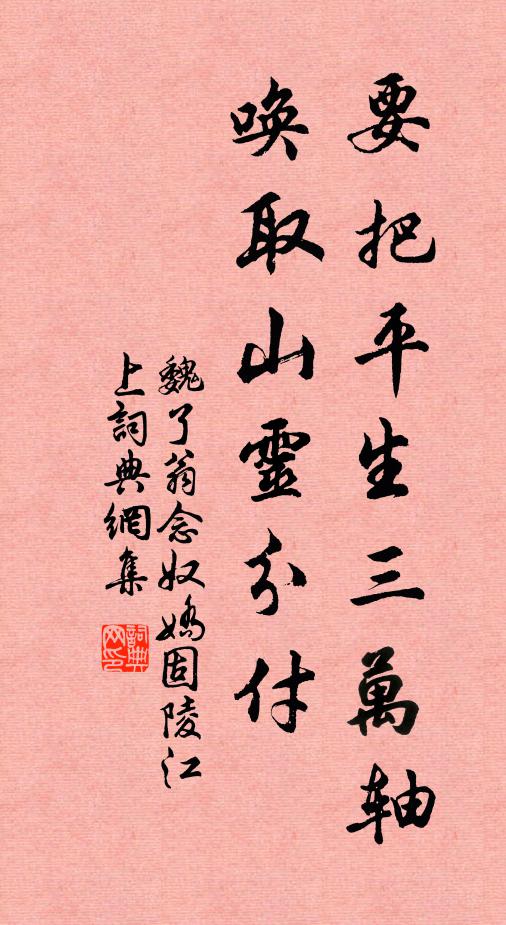 要把平生三萬軸
喚取山靈分付
魏了翁念奴嬌固陵江
上詞典網集
詞典網印